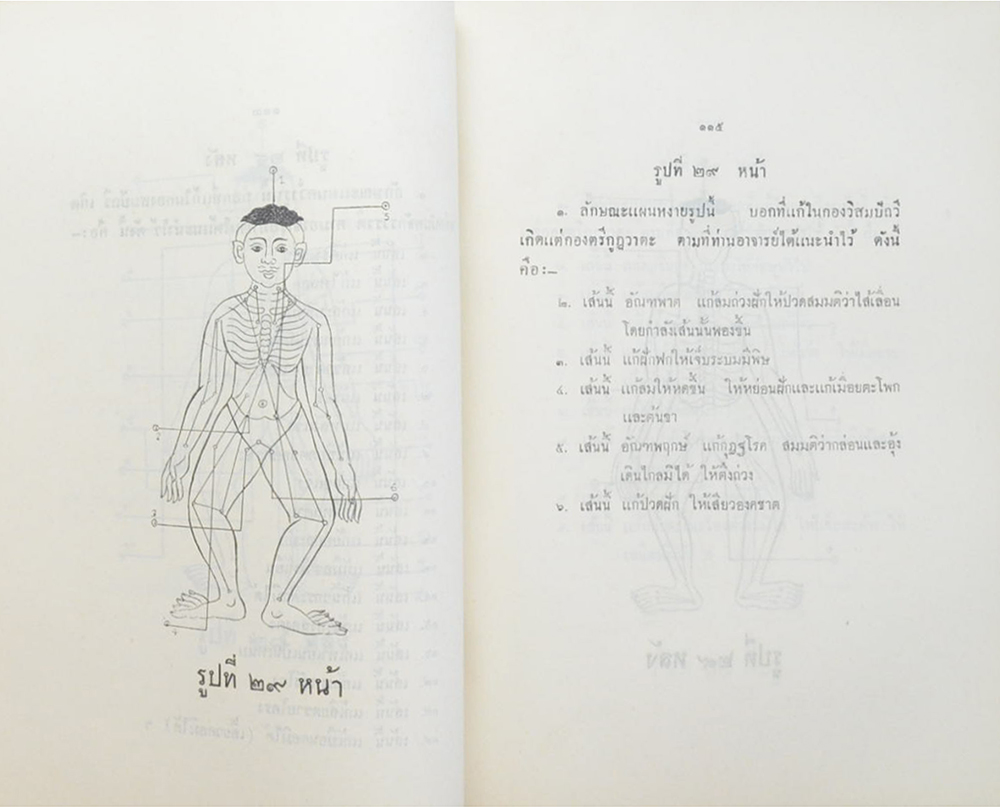 1
5
2
6
3
4
รูปที่ ๒๙ หน้า
๑๑๕
รูปที่ ๒๙ หน้า
๑. ลักษณะแผนหงายรูปนี้ บอกที่แก้ในกองวิสมบักวี
เกิดแต่กองตรีกูฏวาตะ ตามที่ท่านอาจารย์ได้แนะนำไว้ ดังนี้
คือ:—
๒. เส้นนี้ อัณฑพาต แก้ลมถ่วงฝักให้ปวดสมมติว่าไส้เลื่อน
โดยกำลังเส้นนั้นพองขึ้น
๓. เส้นนี้ แก้ฝักฟกให้เจ็บระบมมีพิษ
๔. เส้นนี้ แก้ลมให้หดขึ้น ให้หย่อนฝักและแก้เมื่อยตะโพก
และต้นขา
๕. เส้นนี้ อัณฑพฤกษ์ แก้กุฏฐโรค สมมติว่ากล่อนและอุ้ง
เดินไกลมิได้ ให้ตึงถ่วง
๖. เส้นนี้ แก้ปวดฝัก ให้เสียวองคชาต